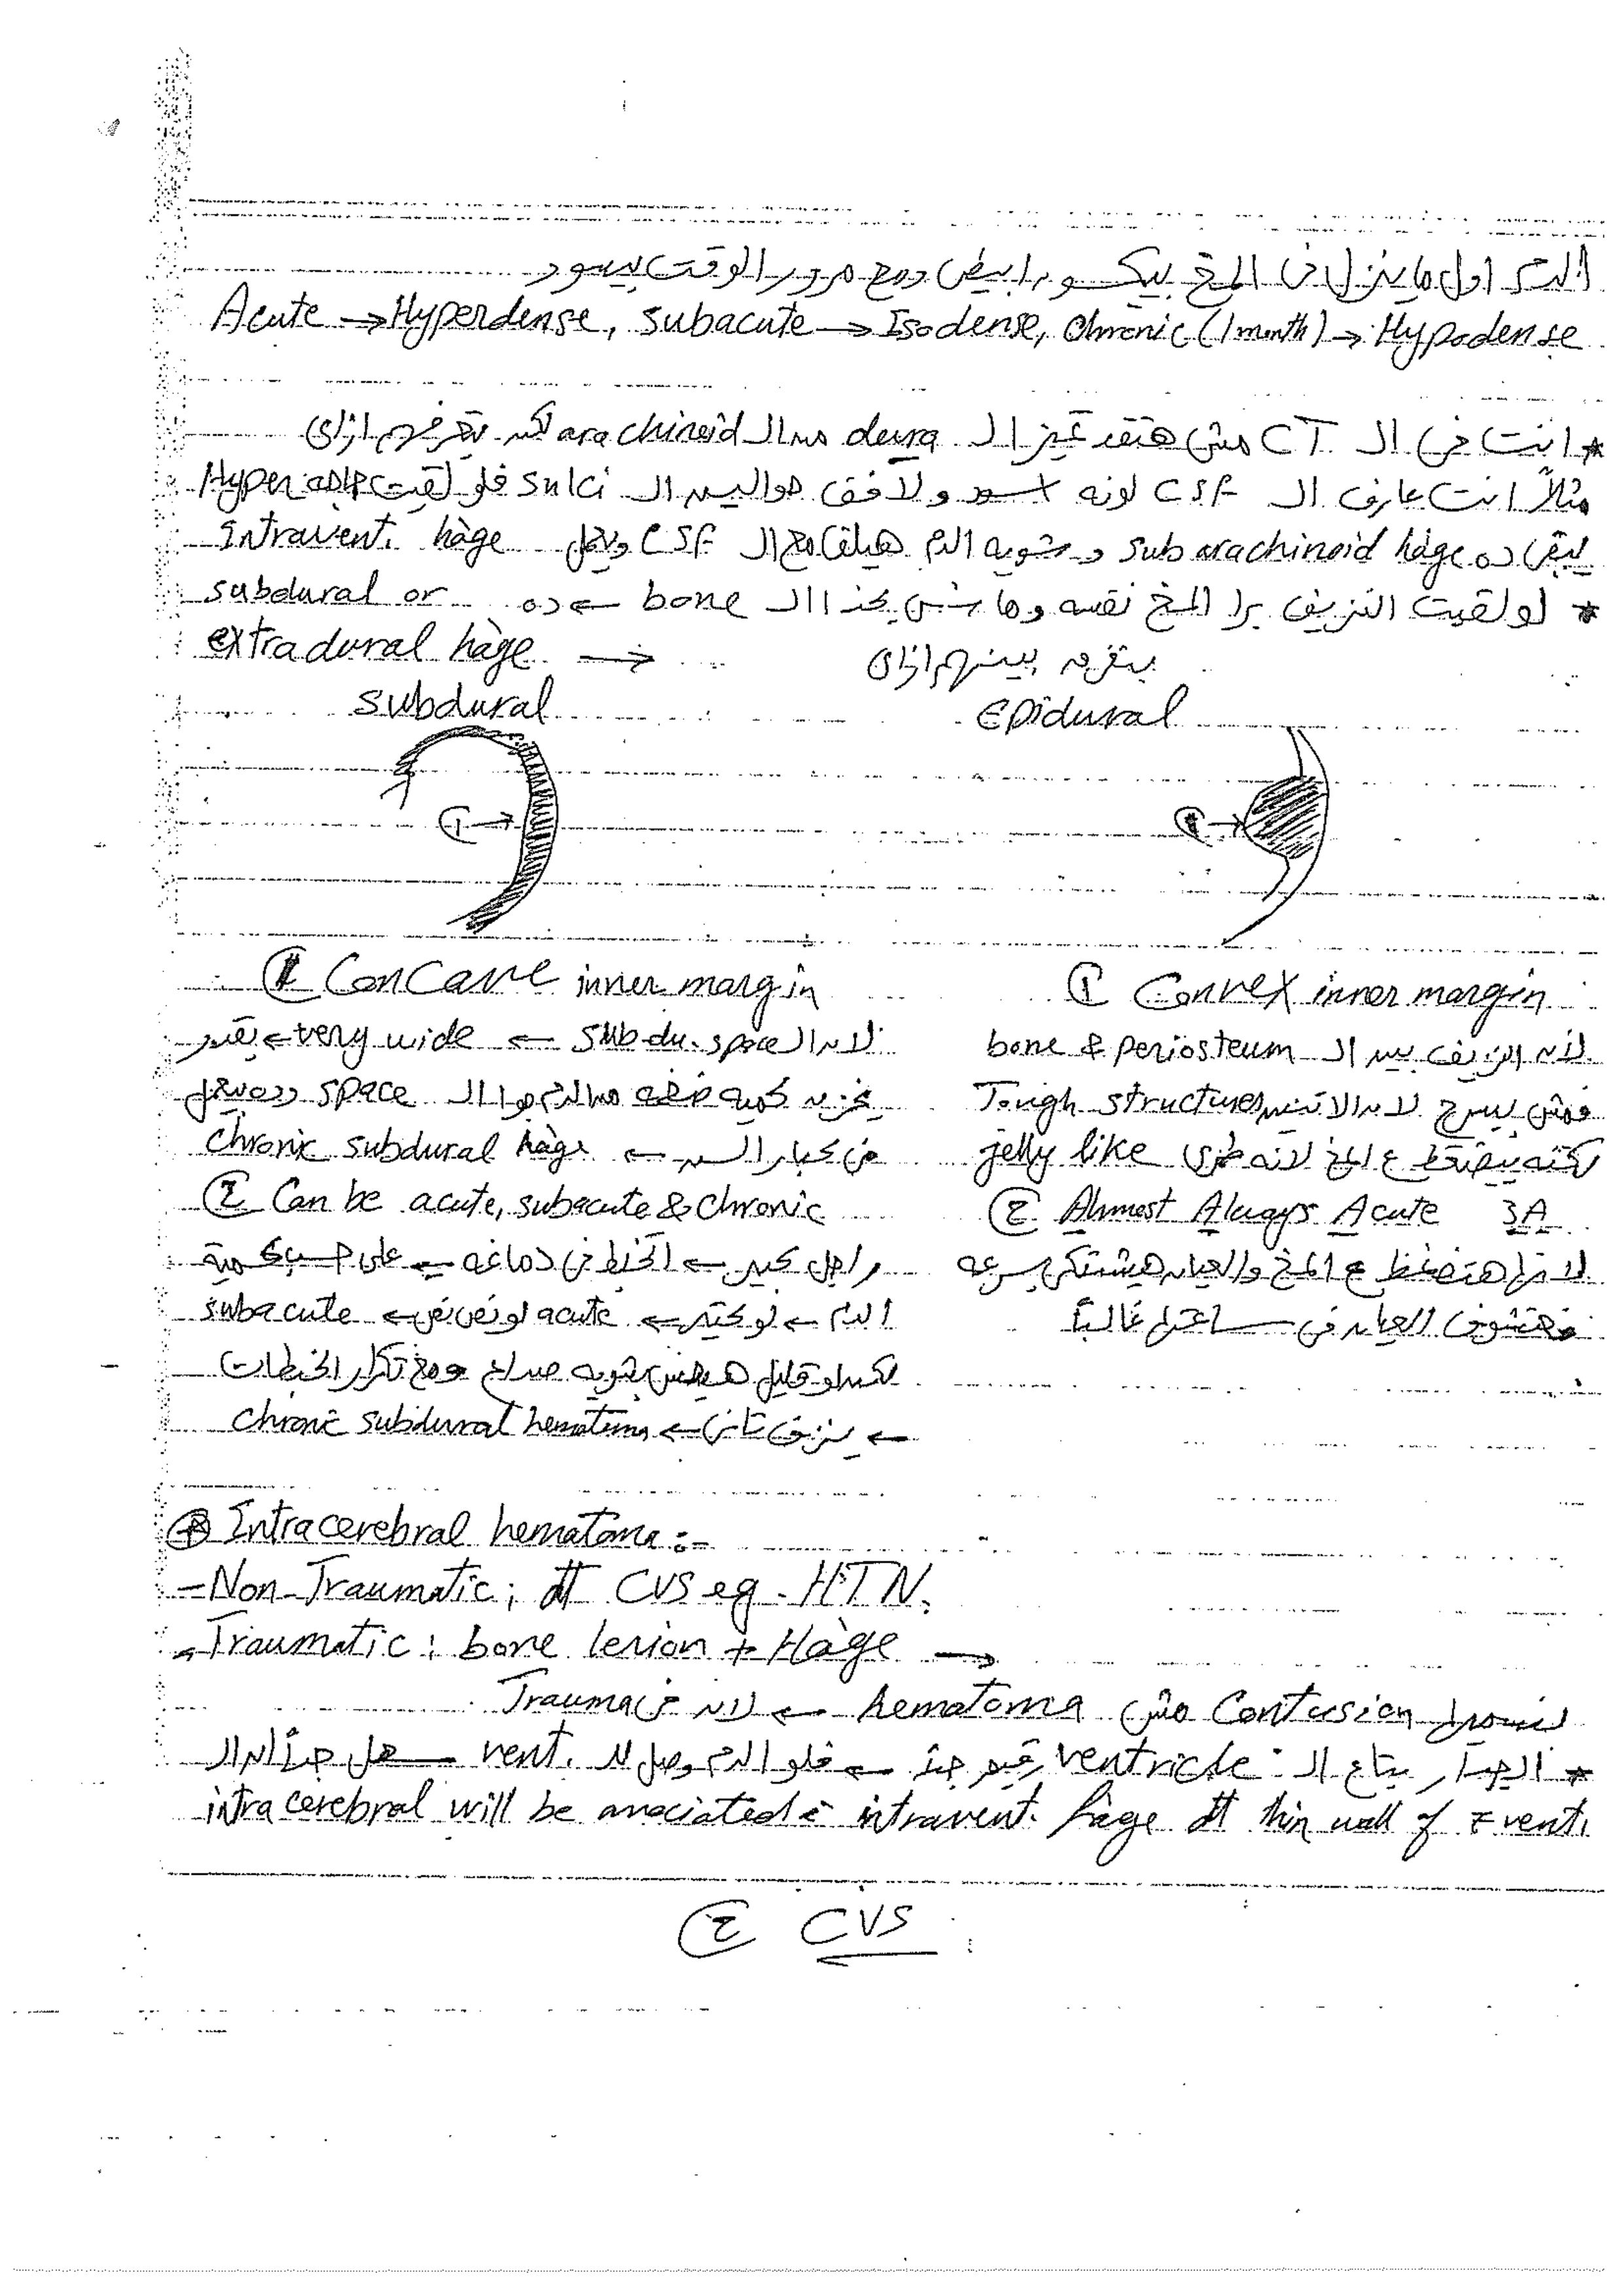 الدم اول ما ينزل فى المخ بيكون ابيض ومع مرور الوقت بيسود
Acute → Hyperdense, subacute → Isodense, Chronic (1 month) → Hypodense
* انت فى ال CT مش هتقدر تميز ال dura من ال arachinoid لكن بتعرفهم ازاى
مثلاً انت عارف ال CSF لونه اسود ولافف حواليه ال sulci فلو لقيت حاجه Hyper
يبقى ده subarachinoid hàge و شويه الدم هيلف مع ال CSF ويعمل Intravent. hàge
* لو لقيت النزيف برا المخ نفسه وماشى بحذا ال bone ← ده subdural or
extradural hàge → بتفرق بينهم ازاى
subdural
Epidural
① →
① →
① Concave inner margin
لان ال subdu. space ← very wide ← يقدر
يخزن كميه ضخمه من الدم جوا ال space وده بيحصل
فى كبار السن ← Chronic subdural hàge
② Can be acute, subacute & chronic
راجل كبير ← اتخبط فى دماغه ← على حسب كمية
الدم ← لو كتير ← acute لو نص نص ← subacute
لكن لو قليل هيحس بشوية صداع ومع تكرار الخبطات
← ينزف تانى ← Chronic subdural hematoma
① Convex inner margin
لان النزيف بين ال bone & periosteum
فمش بيسرح لان الاتنين Tough structures
لكنه بيضغط ع المخ لانه طرى jelly like
② Almost Always Acute 3A
لانها هتضغط ع المخ والعيان هيشتكى بسرعه
فهتشوف العيان فى ساعتها غالباً
⊛ Intracerebral hematoma :-
- Non-Traumatic ; dt CVS eg. HTN.
- Traumatic : bone lesion + Hàge →
بنسميها Contusion مش hematoma ← لانه فى Trauma
* الجدار بتاع ال ventricle رقيق جداً ← فلو الدم وصل لل vent. سهل جداً ان ال
intracerebral will be associated c̄ intravent. hage dt thin wall of z vent.
② CVS